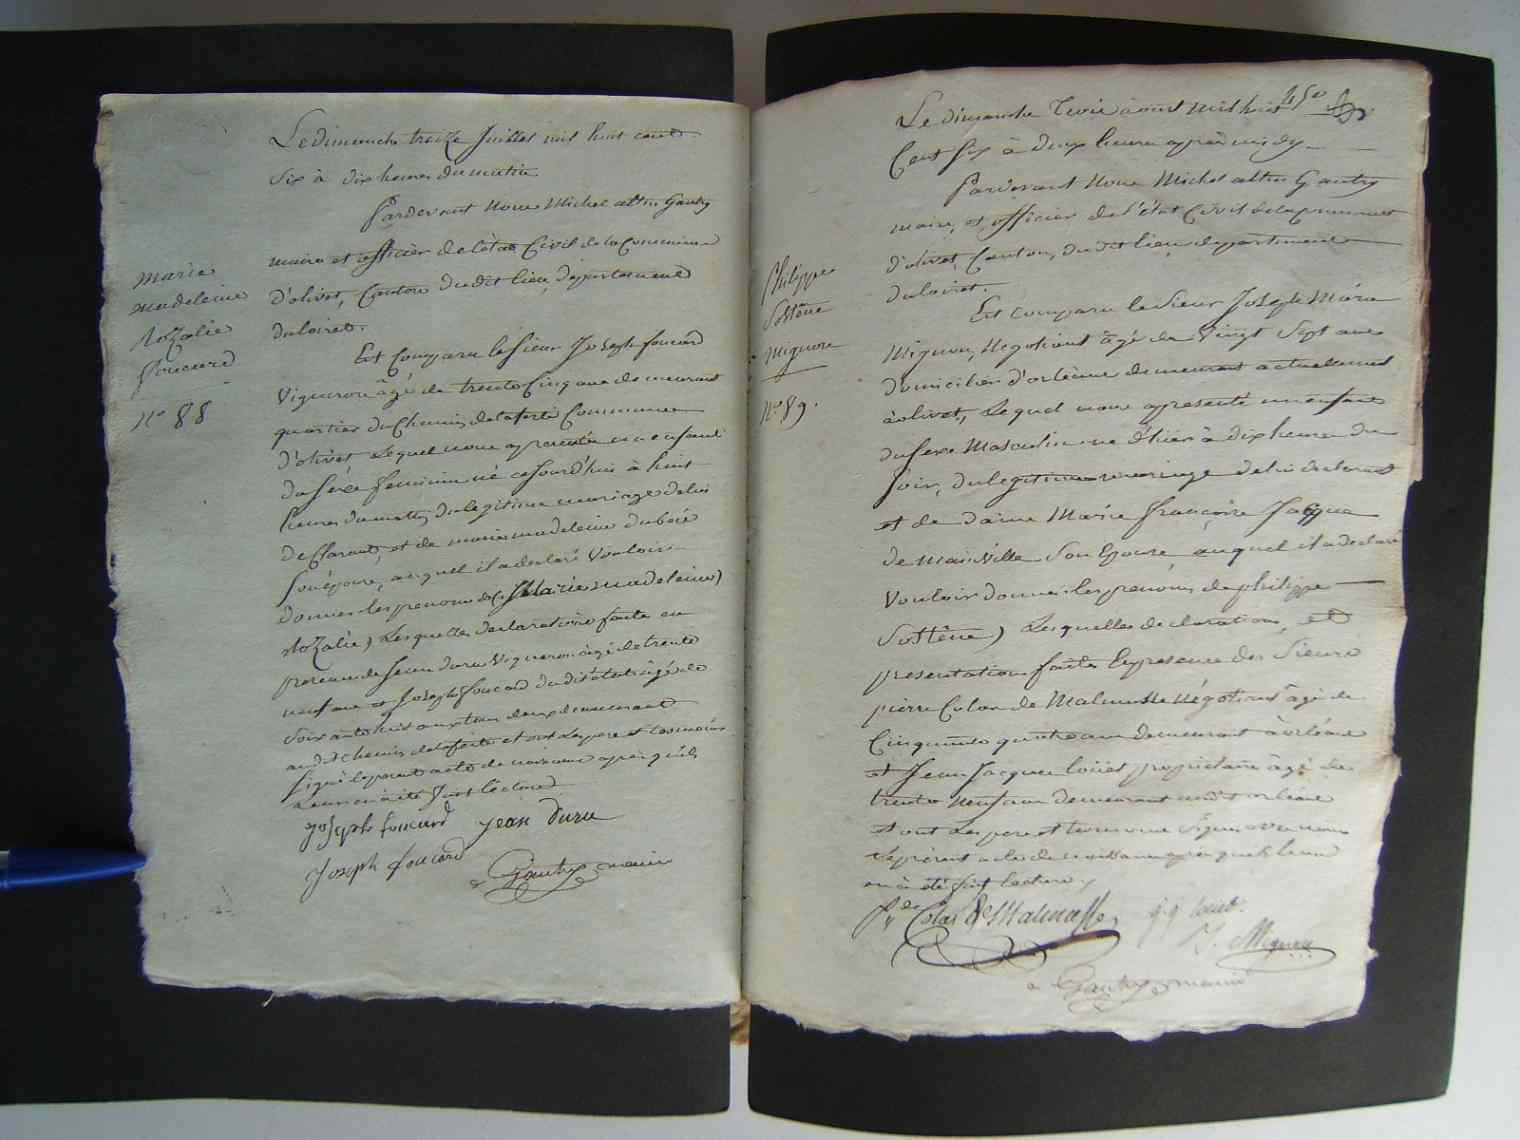 Le dimanche treize Juillet mil huit cent
Six à dix heures du matin
Pardevant Nous Michel Gautry
maire et officier de l'état Civil de la Commune
d'olivet, Canton dudit lieu, département
du loiret.
Est Comparu le Sieur Joseph foucard
Vigneron âgé de trente Cinq ans demeurant
quartier du Chemin de la ferté Commune
d'olivet Lequel nous a presenté un enfant
du Séxe feminin né cejourd'hui à huit
heures du matin, du legitime mariage de lui
declarant, et de marie madeleine dubois
Son épouse, auquel il a declaré Vouloir
donner les prenoms de (Marie madeleine)
RoZalie) Lesquelles declarations faite en
presence de Jean duru Vigneron âgé de trente
neuf ans et Joseph foucard du dit état âgé de
Soixante huit ans tous deux demeurant
audit chemin de la ferté et ont Les pere et temoins
Signé le present acte de naissance après qu'il
Leur en a été fait lecture
joseph foucard jean duru
Joseph foucard
Gautry maire
Marie
Madeleine
RoZalie
foucard
No 88
45e
Le dimanche Trois août mil huit
Cent Six à deux heures après midy
Pardevant Nous Michel Gautry
maire, et officier de l'état Civil de la commune
d'olivet, Canton, du dit lieu, departement
du loiret.
Est comparu le Sieur Joseph Marie
Mignon, Negotiant âgé de Vingt Sept ans
domicilié d'orléans demeurant actuellement
à olivet, Lequel nous a presenté un enfant
du Sexe Masculin né d'hier à dix heures du
Soir, du legitime mariage de lui declarant
et de dame Marie françoise Jacque
de Mainville Son Epouse auquel il a declaré
Vouloir donner les prenoms de philippe
Sosténe) Lesquelles declarations, et
presentation faites En presence des Sieurs
pierre Colas de Malmusse Négotiant âgé de
Cinquante quatre ans demeurant à orléans
et Jean Jacque loüet proprietaire âgé de
trente neuf ans demeurant audit orléans
et ont Les pere et temoins Signé avec nous
Le présent acte de naissance après que Lecture
en à été fait Lecture.
Colas de Malmusse j.j. louet.
J. Mignon
Gautry maire
Philippe
Sosténe
Mignon
No 89.